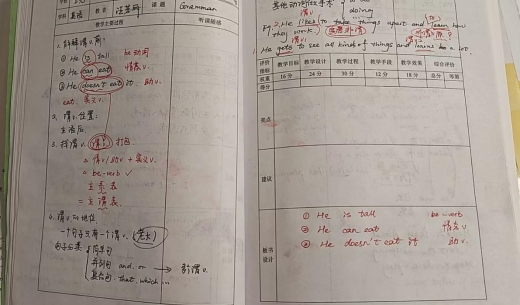 学科 英语 教师 课题 Grammar
教学主要过程 听课随感
① He is tall be动词
② He can eat 情态v.
③ He doesn't eat it. 助v.
eat. 实义v.
2. 谓v.位置:
主语后.
3. 择谓v. 打包.
= 情v/助v + 实义v.
= be-verb ✓
主 表
= 主 谓 表.
4. 谓v.的地位
一个句子只有一个谓v. (老大)
句子分类 简单句
并列句 and. or
复合句. that. which...
→ 找谓v.
doing
He likes to take things apart and learn how
they work.
He gets to see all kind of things and learns be a lot.
评价指标 教学目标 教学设计 教学过程 教学手段 教学效果 综合评价
权重 16分 24分 30分 12分 18分 总分 等第
得分
观点
建议
板书设计
① He is tall be-verb
② He can eat 情态v
③ He doesn't eat it 助v.